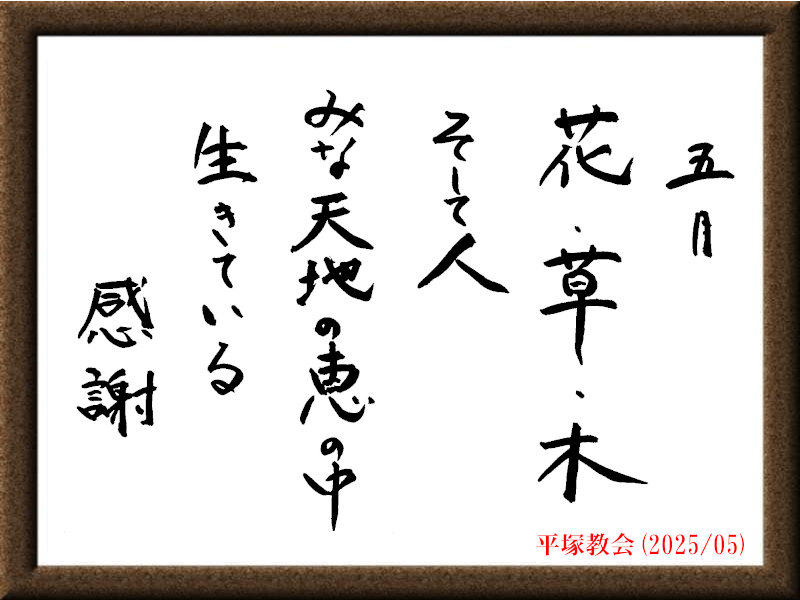 五月
花・草・木
そして人
みな天地の恵の中
生きている
感謝
平塚教会(2025/05)